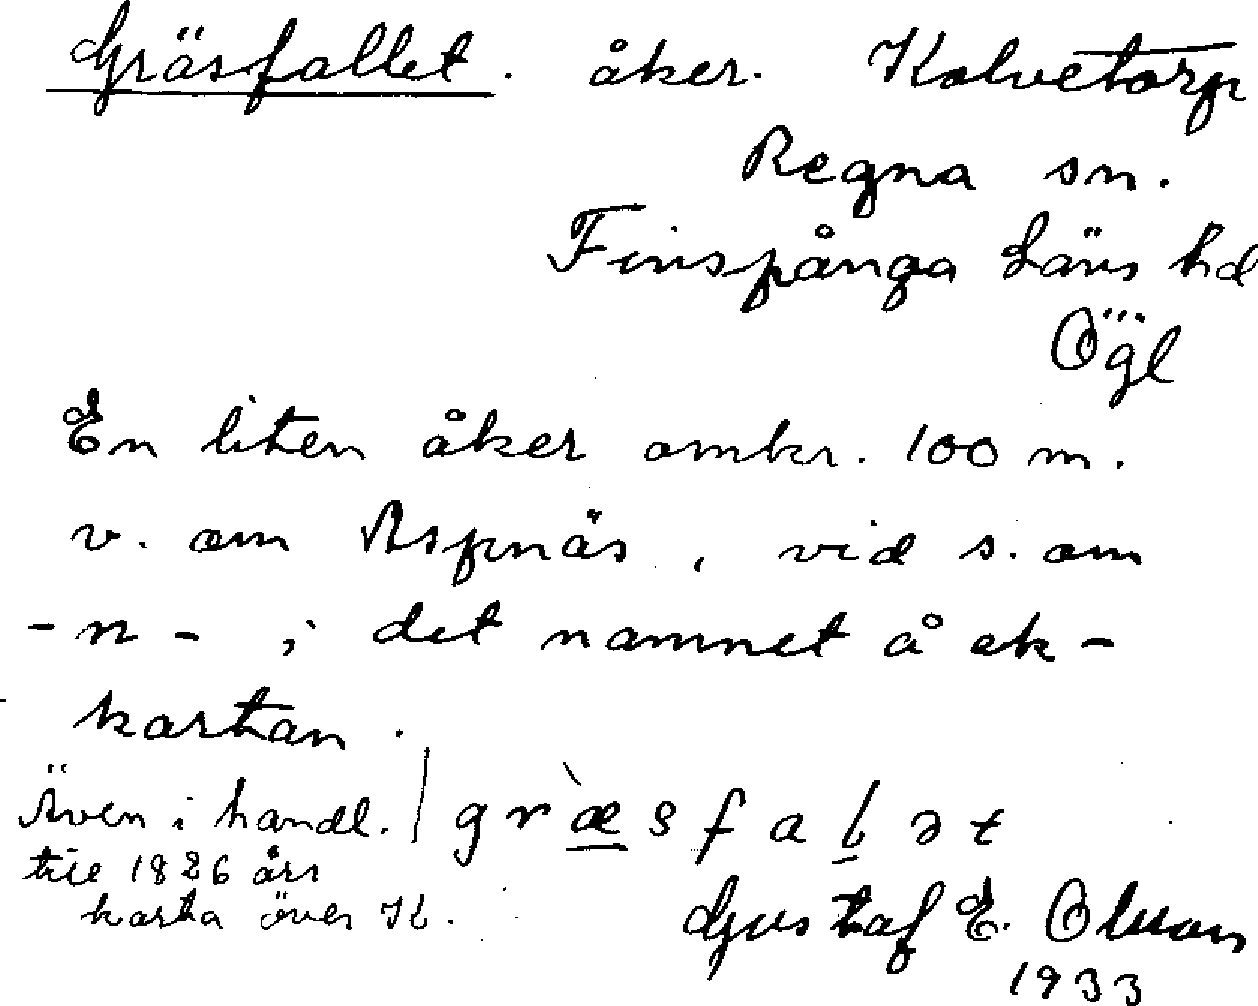 Gräsfallet. åker. Kalvetorp
Regna sn.
Finspånga läns hd
Ögl
En liten åker omkr. 100 m.
v. om Aspnäs, vid s. om
-n- i det namnet å ek-
kartan.
Även i handl.
till 1826 års
karta över K.
græsfalət
Gustaf E. Olsson
1933